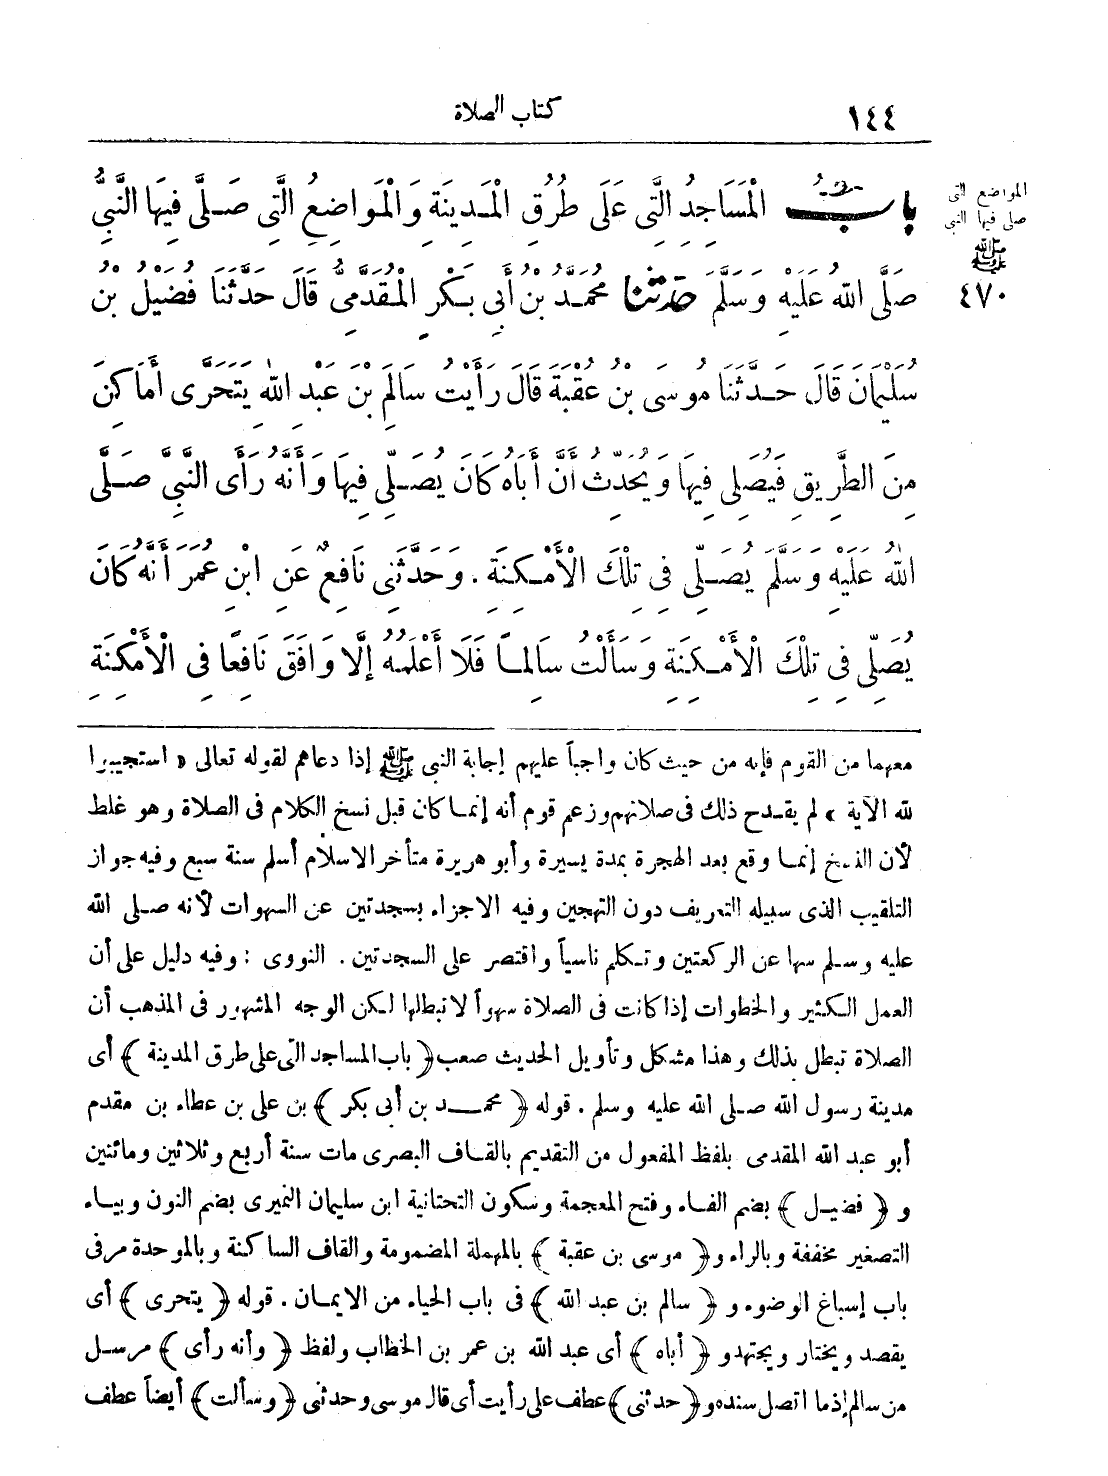 ١٤٤
كتاب الصلاة
المواضع التى
صلى فيها النبى
ﷺ
٤٧٠
بابُ الْمَسَاجِدُ الَّتِى عَلَى طُرُقِ الْمَدِينَةِ وَالْمَوَاضِعِ الَّتِى صَلَّى فِيهَا النَّبِىُّ
صَلَّى اللهُ عَلَيْهِ وَسَلَّمَ حَدَّثَنَا مُحَمَّدُ بْنُ أَبِى بَكْرٍ الْمُقَدَّمِىُّ قَالَ حَدَّثَنَا فُضَيْلُ بْنُ
سُلَيْمَانَ قَالَ حَدَّثَنَا مُوسَى بْنُ عُقْبَةَ قَالَ رَأَيْتُ سَالِمَ بْنَ عَبْدِ اللهِ يَتَحَرَّى أَمَاكِنَ
مِنَ الطَّرِيقِ فَيُصَلِّى فِيهَا وَيُحَدِّثُ أَنَّ أَبَاهُ كَانَ يُصَلِّى فِيهَا وَأَنَّهُ رَأَى النَّبِىَّ صَلَّى
اللهُ عَلَيْهِ وَسَلَّمَ يُصَلِّى فِى تِلْكَ الْأَمْكِنَةِ . وَحَدَّثَنِى نَافِعٌ عَنِ ابْنِ عُمَرَ أَنَّهُ كَانَ
يُصَلِّى فِى تِلْكَ الْأَمْكِنَةِ وَسَأَلْتُ سَالِمًا فَلَا أَعْلَمُهُ إِلَّا وَافَقَ نَافِعًا فِى الْأَمْكِنَةِ
معهما من القوم فإنه من حيث كان واجباً عليهم إجابة النبى ﷺ إذا دعاهم لقوله تعالى « استجيبوا
لله الآية » لم يقدح ذلك فى صلاتهم وزعم قوم أنه إنما كان قبل نسخ الكلام فى الصلاة وهو غلط
لأن النسخ إنما وقع بعد الهجرة بمدة يسيرة وأبو هريرة متأخر الاسلام أسلم سنة سبع وفيه جواز
التلقيب الذى سبيله التعريف دون التهجين وفيه الاجزاء بسجدتين عن السهوات لأنه صلى الله
عليه وسلم سها عن الركعتين وتكلم ناسياً واقتصر على السجدتين . النووى : وفيه دليل على أن
العمل الكثير والخطوات إذا كانت فى الصلاة سهواً لا تبطلها لكن الوجه المشهور فى المذهب أن
الصلاة تبطل بذلك وهذا مشكل وتأويل الحديث صعب ﴿ باب المساجد التى على طرق المدينة ﴾ أى
مدينة رسول الله صلى الله عليه وسلم . قوله ﴿ محمد بن أبى بكر ﴾ بن على بن عطاء بن مقدم
أبو عبد الله المقدمى بلفظ المفعول من التقديم بالقاف البصرى مات سنة أربع وثلاثين ومائتين
و ﴿ فضيل ﴾ بضم الفاء وفتح المعجمة وسكون التحتانية ابن سليمان النميرى بضم النون وبياء
التصغير مخففة وبالراء و ﴿ موسى بن عقبة ﴾ بالمهملة المضمومة والقاف الساكنة وبالموحدة مر فى
باب إسباغ الوضوء و ﴿ سالم بن عبد الله ﴾ فى باب الحياء من الايمان . قوله ﴿ يتحرى ﴾ أى
يقصد ويختار ويجتهد و ﴿ أباه ﴾ أى عبد الله بن عمر بن الخطاب ولفظ ﴿ وأنه رأى ﴾ مرسل
من سالم إذ ما اتصل سنده و ﴿ حدثنى ﴾ عطف على رأيت أى قال موسى وحدثنى ﴿ وسألت ﴾ أيضاً عطف